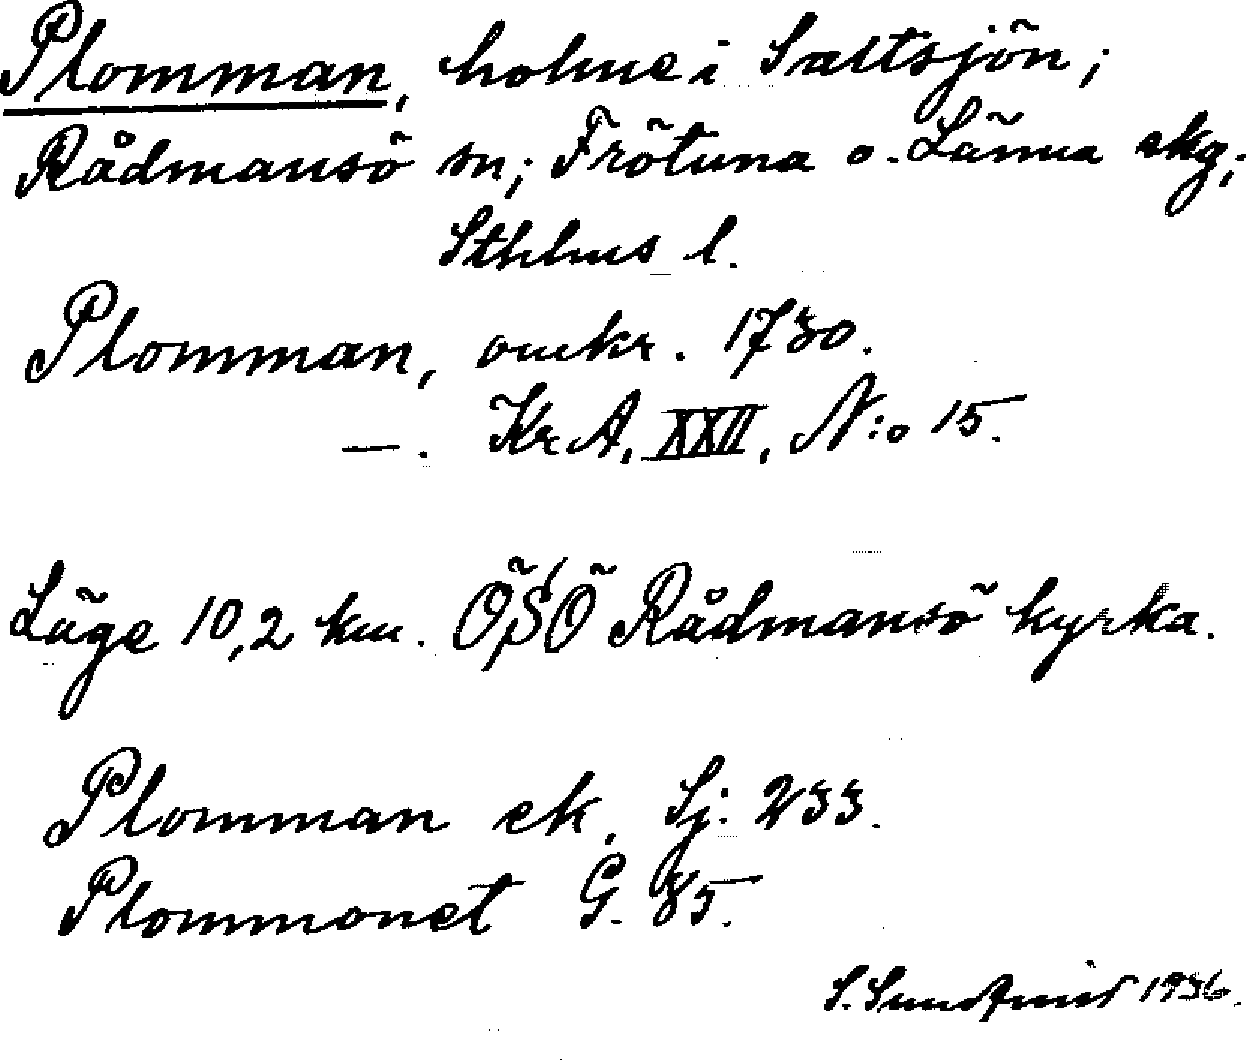 Plomman, holme i Saltsjön;
Rådmansö sn; Frötuna o. Länna skg;
Sthlms l.
Plomman, omkr. 1730.
—. Kr A, XXII, N:o 15.
Läge 10,2 km. ÖSÖ Rådmansö kyrka.
Plomman ek. Sj. 233.
Plommonet G. 85.
S. Sundqvist 1936.